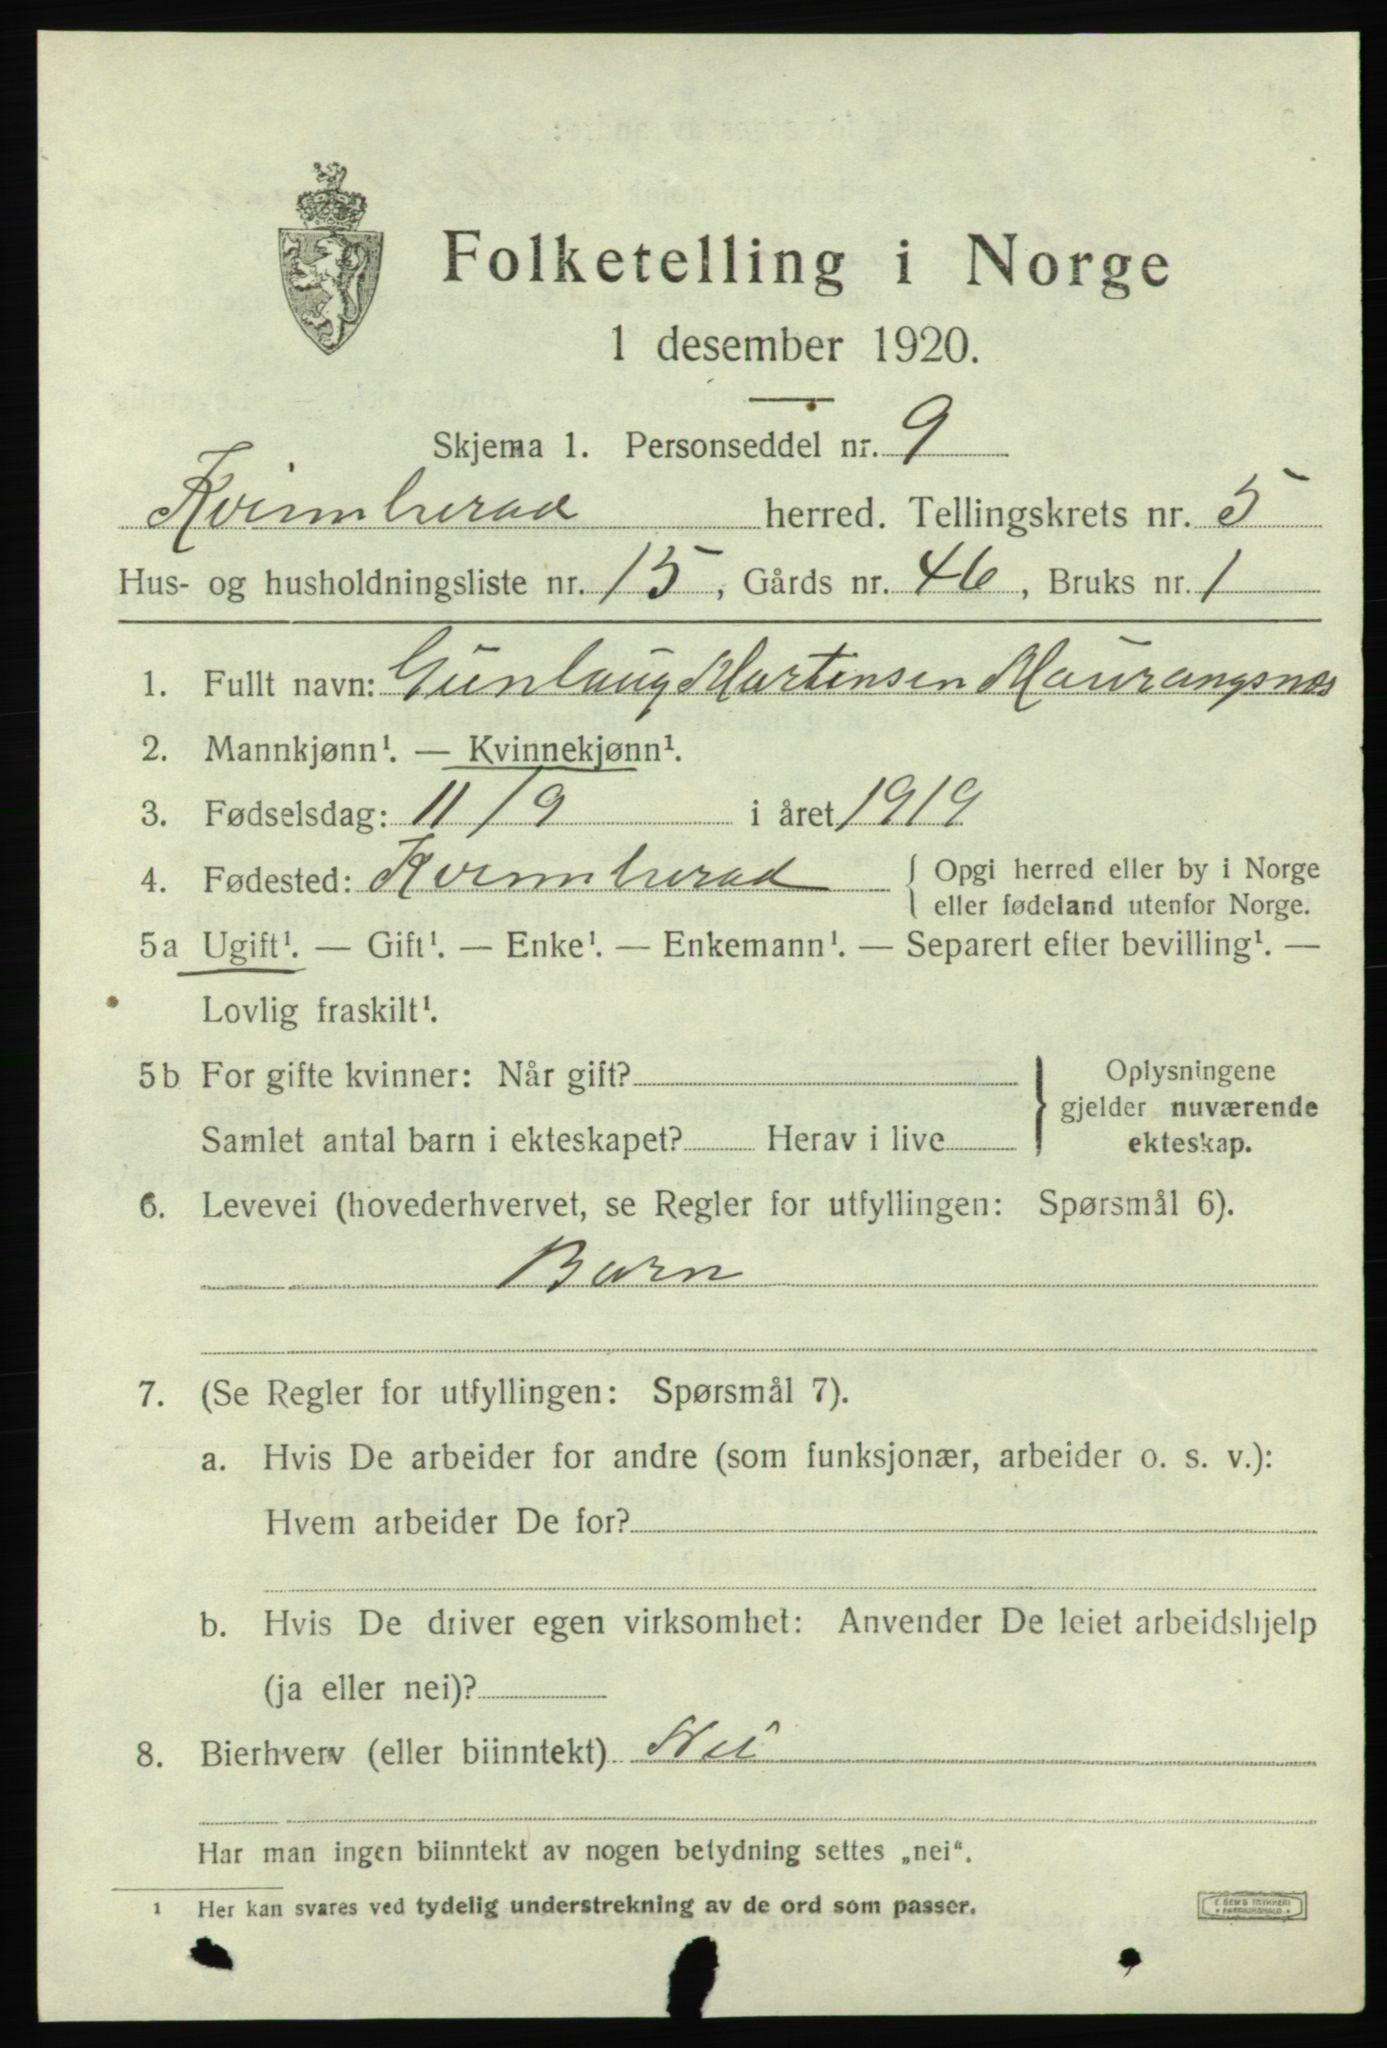 Folketelling i Norge
1 desember 1920.
Skjema 1. Personseddel nr. 9
Kvinnherad herred. Tellingskrets nr. 5
Hus- og husholdningsliste nr. 15, Gårds nr. 46, Bruks nr. 1
1. Fullt navn: Gunlaug Martinsen Maurangsnes
2. Mannkjønn¹. — Kvinnekjønn¹.
3. Fødselsdag: 11/9 i året 1919
4. Fødested: Kvinnherad { Opgi herred eller by i Norge
eller fødeland utenfor Norge.
5a Ugift¹. — Gift¹. — Enke¹. — Enkemann¹. — Separert efter bevilling¹. —
Lovlig fraskilt¹.
5b For gifte kvinner: Når gift? } Oplysningene
gjelder nuværende
Samlet antal barn i ekteskapet? Herav i live ekteskap.
6. Levevei (hovederhvervet, se Regler for utfyllingen: Spørsmål 6).
Barn
7. (Se Regler for utfyllingen: Spørsmål 7).
a. Hvis De arbeider for andre (som funksjonær, arbeider o. s. v.):
Hvem arbeider De for?
b. Hvis De driver egen virksomhet: Anvender De leiet arbeidshjelp
(ja eller nei)?
8. Bierhverv (eller biinntekt) Nei
Har man ingen biinntekt av nogen betydning settes „nei“.
¹ Her kan svares ved tydelig understrekning av de ord som passer.